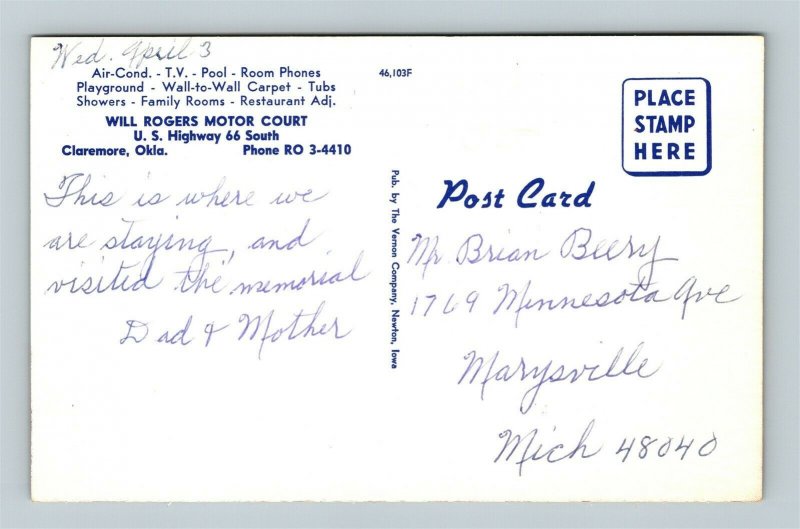 Wed. April 3
Air-Cond. - T.V. - Pool - Room Phones
Playground - Wall-to-Wall Carpet - Tubs
Showers - Family Rooms - Restaurant Adj.
WILL ROGERS MOTOR COURT
U. S. Highway 66 South
Claremore, Okla. Phone RO 3-4410
This is where we
are staying, and
visited the memorial
Dad & Mother
46,103F
Pub. by The Vernon Company, Newton, Iowa
PLACE
STAMP
HERE
Post Card
Mr. Brian Beery
1769 Minnesota Ave
Marysville
Mich 48040